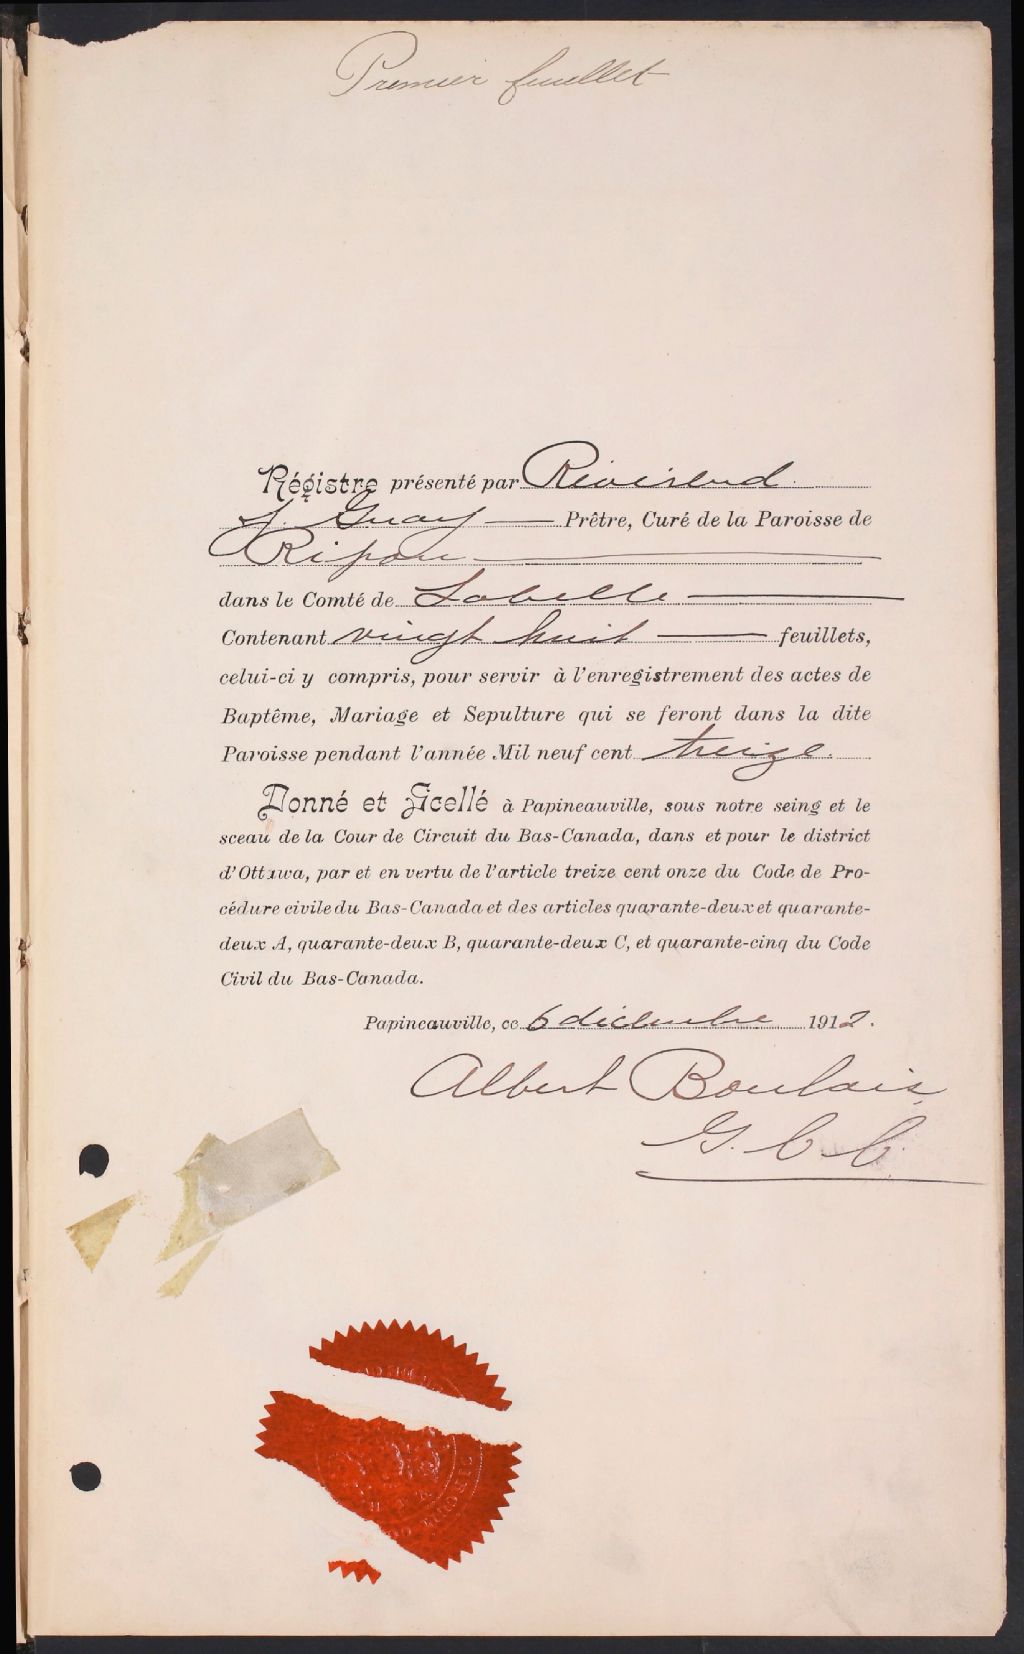 Premier feuillet
Régistre présenté par Révérend
J. Guay Prêtre, Curé de la Paroisse de
Ripon
dans le Comté de Labelle
Contenant vingt huit feuillets,
celui-ci y compris, pour servir à l'enregistrement des actes de
Baptême, Mariage et Sepulture qui se feront dans la dite
Paroisse pendant l'année Mil neuf cent treize.
Donné et Scellé à Papineauville, sous notre seing et le
sceau de la Cour de Circuit du Bas-Canada, dans et pour le district
d'Ottawa, par et en vertu de l'article treize cent onze du Code de Pro-
cédure civile du Bas-Canada et des articles quarante-deux et quarante-
deux A, quarante-deux B, quarante-deux C, et quarante-cinq du Code
Civil du Bas-Canada.
Papineauville, ce 6 décembre 1912.
Albert Boulais
G. C. C.